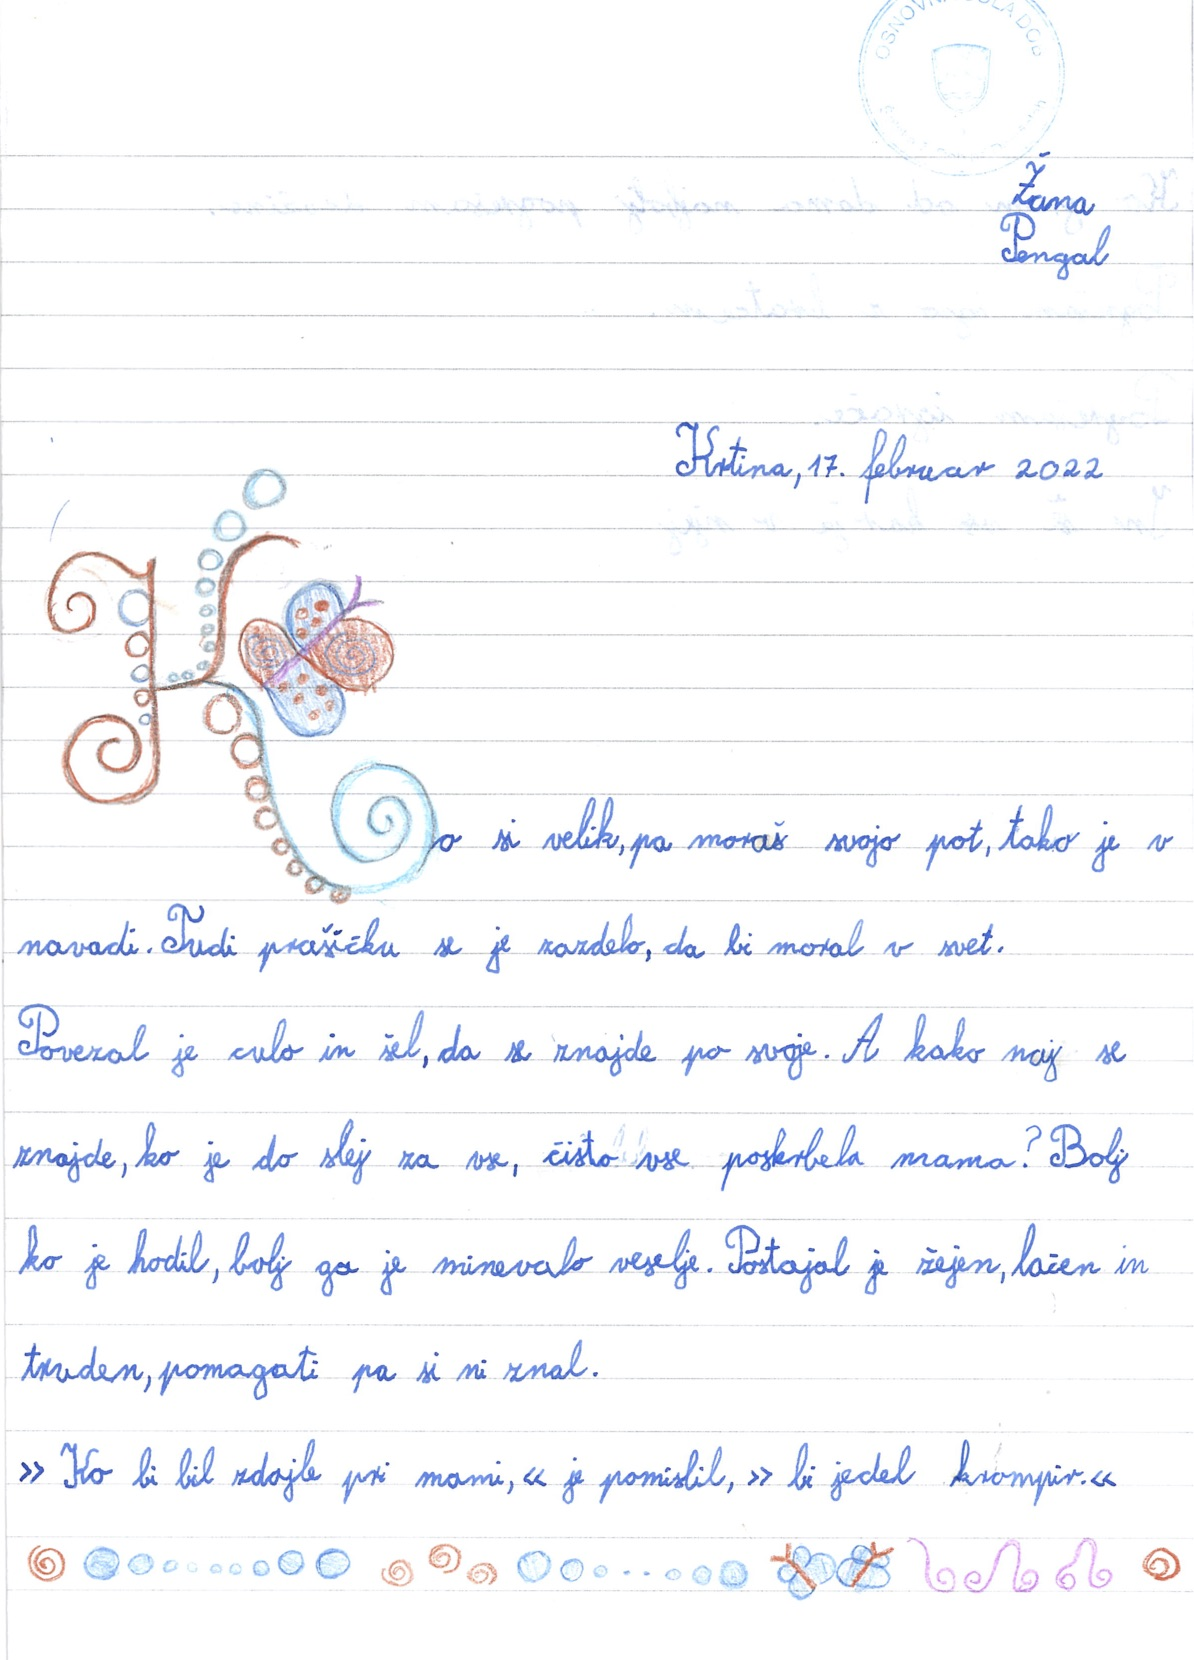 OSNOVNA ŠOLA DOB
Žana
Pengal
Krtina, 17. februar 2022
Ko si velik, pa moraš svojo pot, tako je v
navadi. Tudi prašičku se je zazdelo, da bi moral v svet.
Povezal je culo in šel, da se znajde po svoje. A kako naj se
znajde, ko je do slej za vse, čisto vse poskrbela mama? Bolj
ko je hodil, bolj ga je minevalo veselje. Postajal je žejen, lačen in
truden, pomagati pa si ni znal.
>> Ko bi bil zdajle pri mami, << je pomislil, >> bi jedel krompir. <<